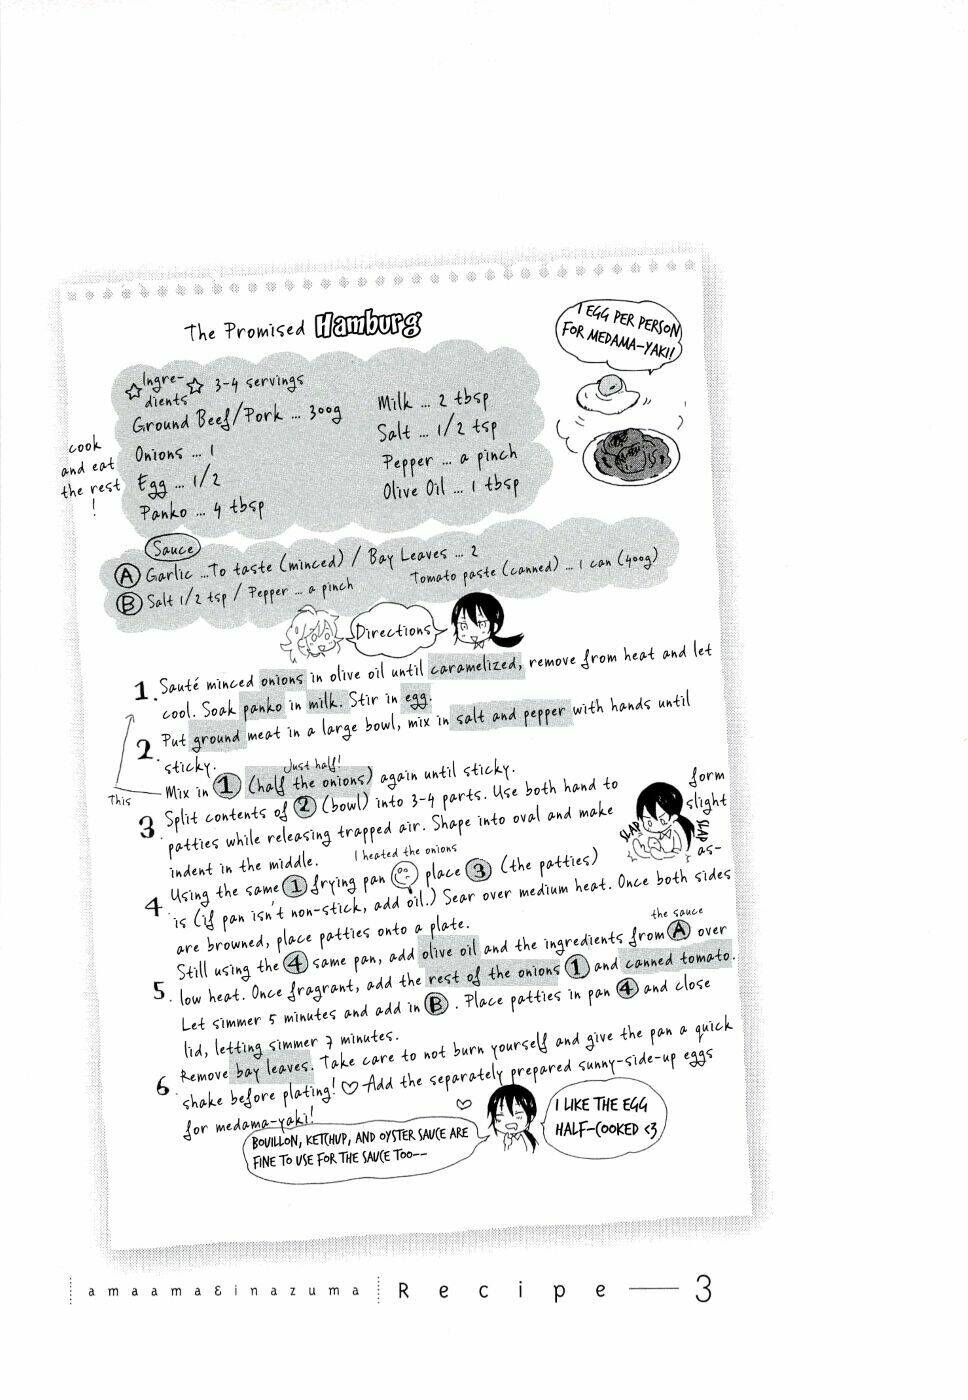 The Promised Hamburg
1 EGG PER PERSON
FOR MEDAMA-YAKI!
☆ Ingre-
dients ☆ 3-4 servings
Ground Beef/Pork ... 300g
Onions ... 1
Egg ... 1/2
Panko ... 4 tbsp
Milk ... 2 tbsp
Salt ... 1/2 tsp
Pepper ... a pinch
Olive Oil ... 1 tbsp
cook
and eat
the rest
!
Sauce
Ⓐ Garlic ...To taste (minced) / Bay Leaves ... 2
Tomato paste (canned) ... 1 can (400g)
Ⓑ Salt 1/2 tsp / Pepper ... a pinch
Directions
1. Sauté minced onions in olive oil until caramelized, remove from heat and let
cool. Soak panko in milk. Stir in egg.
2. Put ground meat in a large bowl, mix in salt and pepper with hands until
sticky.
Just half!
Mix in ① (half the onions) again until sticky.
This
3. Split contents of ② (bowl) into 3-4 parts. Use both hand to form
patties while releasing trapped air. Shape into oval and make slight
indent in the middle.
SLAP
SLAP
I heated the onions
4. Using the same ① frying pan place ③ (the patties) as-
is (if pan isn't non-stick, add oil.) Sear over medium heat. Once both sides
are browned, place patties onto a plate.
the sauce
5. Still using the ④ same pan, add olive oil and the ingredients from Ⓐ over
low heat. Once fragrant, add the rest of the onions ① and canned tomato.
Let simmer 5 minutes and add in Ⓑ. Place patties in pan ④ and close
lid, letting simmer 7 minutes.
6. Remove bay leaves. Take care to not burn yourself and give the pan a quick
shake before plating! ♡ Add the separately prepared sunny-side-up eggs
for medama-yaki!
BOUILLON, KETCHUP, AND OYSTER SAUCE ARE
FINE TO USE FOR THE SAUCE TOO--
I LIKE THE EGG
HALF-COOKED <3
amaama&inazuma Recipe — 3